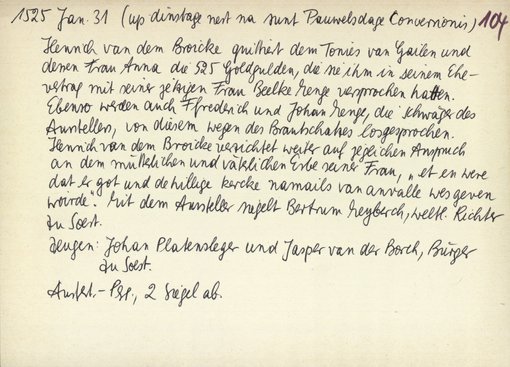 1525 Jan. 31 (up dinstage nest na sunt Pauwelsdage Convernonis) 104
Hennich van dem Broicke quittiert dem Tonies van Gailen und
dessen Frau Anna die 525 Goldgulden, die sie ihm in seinem Ehe-
vertrag mit seiner jetzigen Frau Beelke Menge versprochen hatten.
Ebenso werden auch Ffrederich und Johan Menge, die Schwäger des
Ausstellers, von diesem wegen des Brautschatzes losgesprochen.
Hennich van dem Broicke verzichtet weiter auf jeglichen Anspruch
an dem mütterlichen und väterlichen Erbe seiner Frau, „et en were
dat er got und de hillige kercke namails van anvalle wes geven
worde". Mit dem Aussteller siegelt Bertrum Meyberch, weltl. Richter
zu Soest.
Zeugen: Johan Platensleger und Jasper van der Borch, Bürger
zu Soest.
Ausfert.- Pgt., 2 Siegel ab.